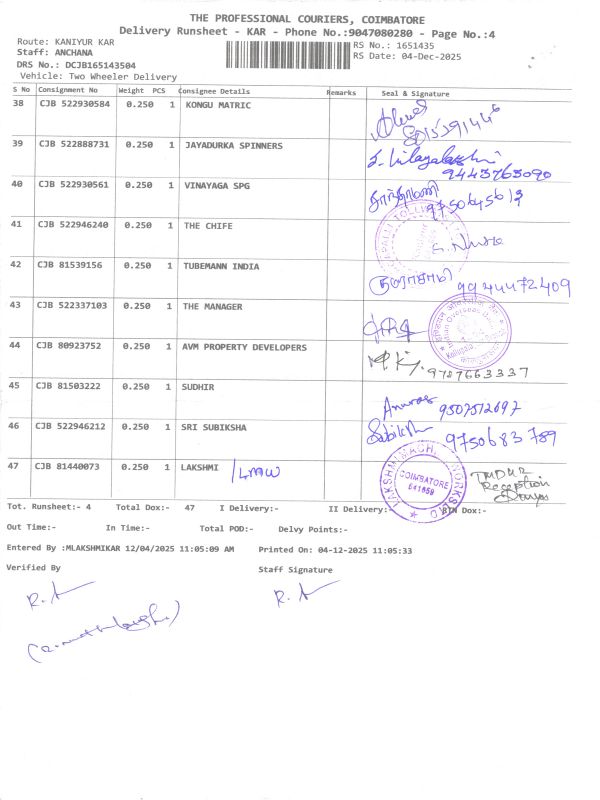 THE PROFESSIONAL COURIERS, COIMBATORE
Delivery Runsheet - KAR - Phone No.:9047080280 - Page No.:4
Route: KANIYUR KAR
RS No.: 1651435
Staff: ANCHANA
RS Date: 04-Dec-2025
DRS No.: DCJB165143504
Vehicle: Two Wheeler Delivery
S No Consignment No Weight PCS Consignee Details Remarks Seal & Signature
38 CJB 522930584 0.250 1 KONGU MATRIC
39 CJB 522888731 0.250 1 JAYADURKA SPINNERS
9443763090
40 CJB 522930561 0.250 1 VINAYAGA SPG
9750645613
41 CJB 522946240 0.250 1 THE CHIFE
42 CJB 81539156 0.250 1 TUBEMANN INDIA
9944472409
43 CJB 522337103 0.250 1 THE MANAGER
44 CJB 80923752 0.250 1 AVM PROPERTY DEVELOPERS
9787663337
45 CJB 81503222 0.250 1 SUDHIR
46 CJB 522946212 0.250 1 SRI SUBIKSHA
Subiksha 9750683789
47 CJB 81440073 0.250 1 LAKSHMI /LMW
COIMBATORE
641659
Reception
Tot. Runsheet:- 4 Total Dox:- 47 I Delivery:- II Delivery:- Dox:-
Out Time:- In Time:- Total POD:- Delvy Points:-
Entered By :MLAKSHMIKAR 12/04/2025 11:05:09 AM Printed On: 04-12-2025 11:05:33
Verified By Staff Signature